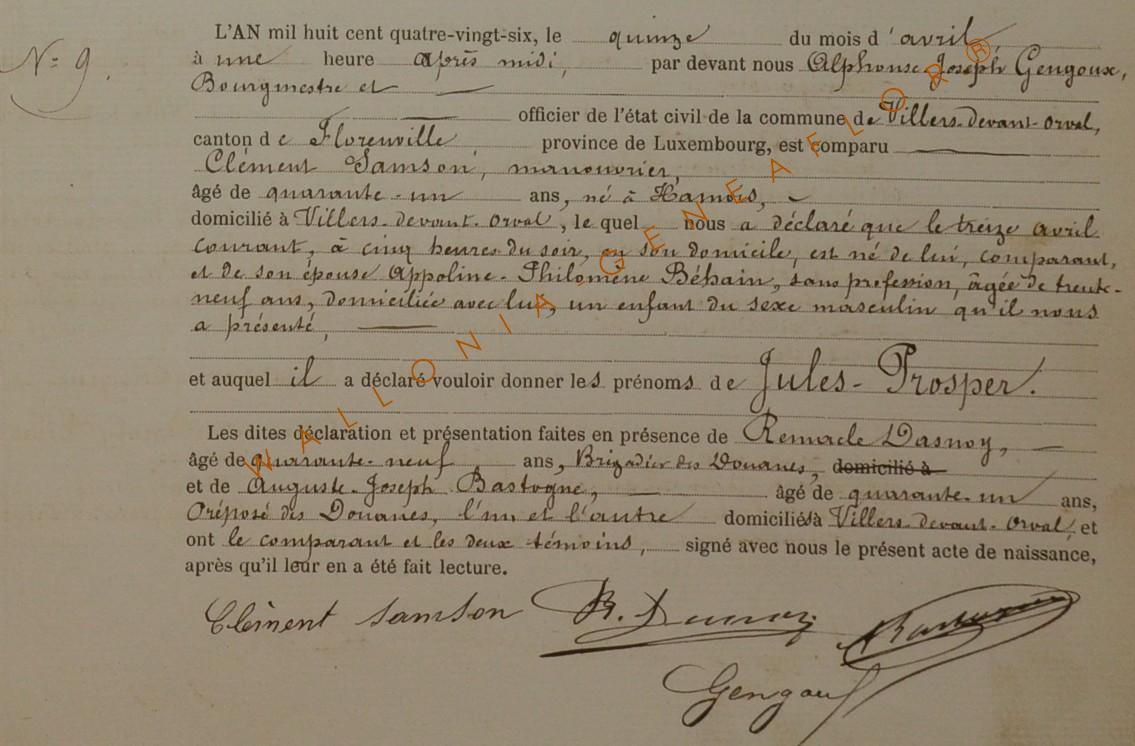 N° 9.
L'AN mil huit cent quatre-vingt-six, le quinze du mois d'avril,
à une heure après midi, par devant nous Alphonse Joseph Gengoux,
Bourgmestre et
officier de l'état civil de la commune de Villers-devant-Orval,
canton de Florenville, province de Luxembourg, est comparu
Clément Samson, manouvrier,
âgé de quarante-un ans, né à Hamois,
domicilié à Villers-devant-Orval, lequel nous a déclaré que le treize avril
courant, à cinq heures du soir, en son domicile, est né de lui, comparant,
et de son épouse Appoline-Philomène Béhain, sans profession, âgée de trente-
neuf ans, domiciliée avec lui, un enfant du sexe masculin qu'il nous
a présenté,
et auquel il a déclaré vouloir donner les prénoms de Jules-Prosper.
Les dites déclaration et présentation faites en présence de Remacle Dasnoy,
âgé de quarante-neuf ans, Brigadier des Douanes, domicilié à
et de Auguste-Joseph Bastogne, âgé de quarante-un ans,
Préposé des Douanes, l'un et l'autre domiciliés à Villers-devant-Orval, et
ont le comparant et les deux témoins, signé avec nous le présent acte de naissance,
après qu'il leur en a été fait lecture.
Clèment Samson R. Dasnoy
Gengoux
WALLONIA GENEAFLOR®